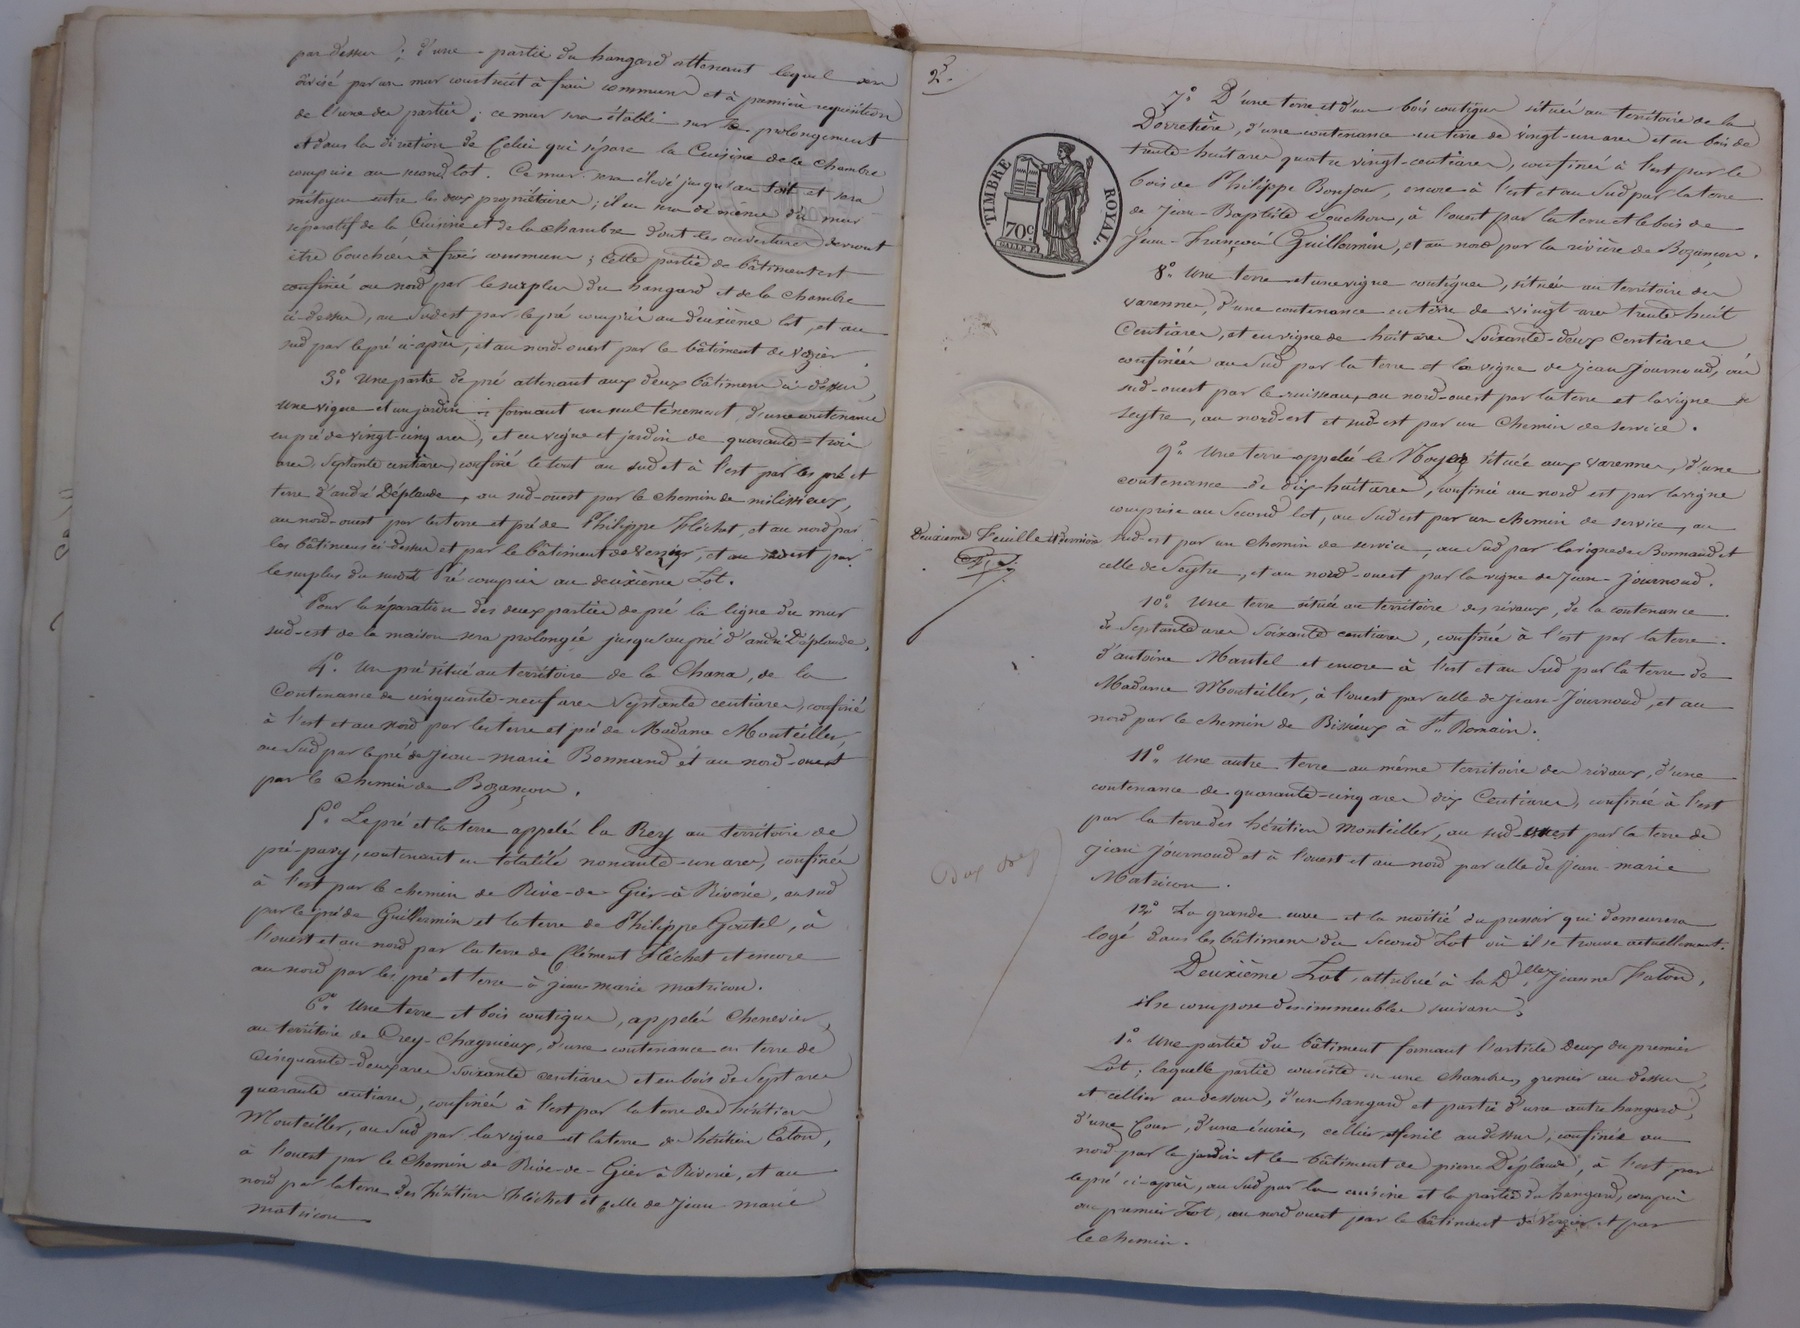 par dessus ; d'une partie du hangard attenant lequel sera
divisé par un mur construit à frais communs et à première requisition
de l'une des parties ; ce mur sera établi sur le prolongement
et dans la direction de celui qui sépare la Cuisine de la chambre
comprise au second lot. Ce mur sera élevé jusqu'au toit et sera
mitoyen entre les deux propriétaires ; il en sera de même du mur
séparatif de la Cuisine et de la chambre dont les ouvertures devront
être bouchées à frais communs ; cette partie de bâtiment est
confinée au nord par le surplus du hangard et de la chambre
ci-dessus, au sud est par le pré compris au deuxième lot, et au
sud par le pré ci-après, et au nord-ouest par le bâtiment de
3° Une partie de pré attenant aux deux bâtimens ci-dessus,
une vigne et un jardin formant un seul ténement d'une contenance
en pré de vingt-cinq ares, et en vigne et jardin de quarante-trois
ares septante centiares, confiné le tout au sud et à l'est par les pré et
terre d'andré Déplaude, au sud-ouest par le chemin de milissieux,
au nord-ouest par les terre et pré de Philippe Fléchet, et au nord par
les bâtimens ci-dessus et par le bâtiment de et au par
le surplus du susdit Pré compris au deuxième Lot.
Pour la séparation des deux parties de pré la ligne du mur
sud-est de la maison sera prolongée jusqu'au pré d'andré Déplaude.
4° Un pré situé au territoire de la Chana, de la
contenance de cinquante-neuf ares septante centiares, confiné
à l'est et au nord par les terre et pré de Madame Monteiller,
au Sud par le pré de Jean-marie Bonnand et au nord-ouest
par le chemin de Bozançon.
5° Le pré et la terre appelés la Rey au territoire de
pré-pasy, contenant en totalité nonante-un ares, confinés
à l'est par le chemin de Rive-de-Gier à Riverie, au sud
par le pré de Guillermin et la terre de Philippe Goutel, à
l'ouest et au nord par la terre de Clément Fléchet et encore
au nord par les pré et terre à jean-marie matricon.
6° Une terre et bois contigus, appelés Chenevier,
au territoire de Crey-Chagnieux, d'une contenance en terre de
cinquante-deux ares soixante centiares et en bois de Sept ares
quarante centiares, confinés à l'est par la terre des héritiers
Monteiller, au Sud par la vigne et la terre des héritiers
à l'ouest par le chemin de Rive-de-Gier à Riverie, et au
nord par la terre des héritiers Fléchet et celle de Jean marie
matricon
2°.
TIMBRE ROYAL.
70c
Deuxième Feuille et dernière
7° D'une terre et d'un bois contigus situés au territoire de la
Dorretière, d'une contenance en terre de vingt-un ares et en bois de
trente-huit ares quatre vingt-centiares, confinés à l'est par le
bois de Philippe Bonjour, encore à l'est et au Sud par la terre
de Jean-Baptiste Souchon, à l'ouest par la terre et le bois de
Jean-François Guillermin, et au nord par la rivière de Bozançon.
8° Une terre et une vigne contigues, situées au territoire des
varennes, d'une contenance en terre de vingt ares trente-huit
Centiares, et en vigne de huit ares Soixante-deux Centiares
confinées au Sud par la terre et la vigne de jean Journoud, au
sud-ouest par le ruisseau, au nord-ouest par la terre et la vigne de
Seytre, au nord-est et sud-est par un chemin de service.
9° Une terre appelée le Noyer située aux varennes, d'une
contenance de dix-huit ares, confinée au nord est par la vigne
comprise au Second lot, au Sud est par un chemin de service, au
sud-est par un chemin de service, au Sud par la vigne de Bonnand et
celle de Seytre, et au nord-ouest par la vigne de Jean-journoud.
10° Une terre située au territoire des rivaux, de la contenance
de Septante ares Soixante centiares, confinée à l'est par la terre
d'antoine Martel et encore à l'est et au Sud par la terre de
Madame Monteiller, à l'ouest par celle de Jean Journoud, et au
nord par le chemin de Bissieux à St. Romain.
11° Une autre terre au même territoire des rivaux, d'une
contenance de quarante-cinq ares dix Centiares, confinée à l'est
par la terre des héritiers Monteiller, au sud-ouest par la terre de
jean journoud et à l'ouest et au nord par celle de jean-marie
Matricon.
12° La grande cuve et la moitié du pressoir qui demeurera
logé dans les bâtimens du Second Lot où il se trouve actuellement.
Deuxième Lot, attribué à la Dlle. Jeanne
il se compose des immeubles suivans,
1° Une partie du bâtiment formant l'article Deux du premier
Lot ; laquelle partie consiste en une chambre, grenier au dessus,
et cellier au dessous, d'un hangard et partie d'une autre hangard,
d'une Cour, d'une écurie, cellier et fenil au dessus, confinée au
nord par le jardin et le bâtiment de pierre Déplaude, à l'est par
le pré ci-après, au Sud par la cuisine et la partie du hangard, compris
au premier Lot, au nord ouest par le bâtiment de et par
le chemin.